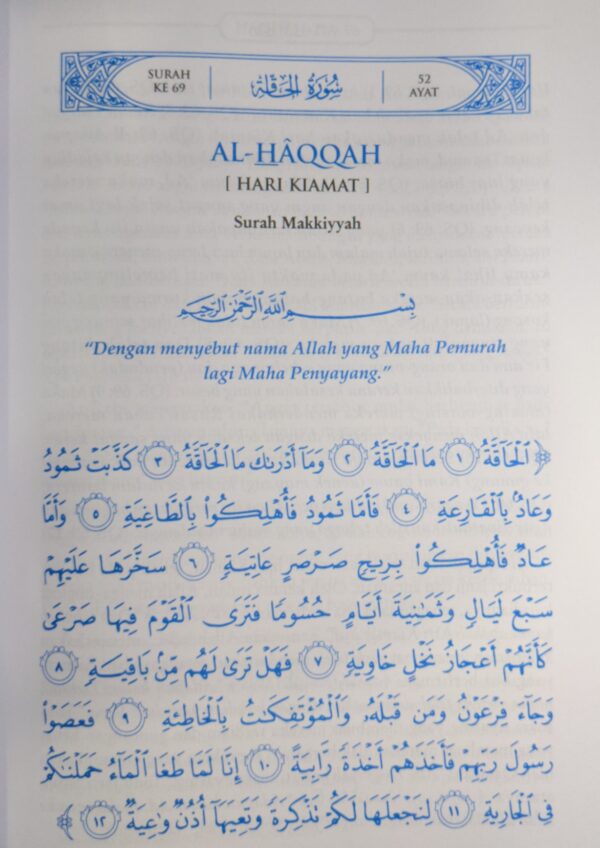 SURAH
KE 69
سُورَةُ الحَاقَّة
52
AYAT
AL-HÂQQAH
[ HARI KIAMAT ]
Surah Makkiyyah
بِسْمِ ٱللَّهِ ٱلرَّحْمَٰنِ ٱلرَّحِيمِ
“Dengan menyebut nama Allah yang Maha Pemurah
lagi Maha Penyayang.”
﴿ ٱلْحَآقَّةُ ١ مَا ٱلْحَآقَّةُ ٢ وَمَآ أَدْرَىٰكَ مَا ٱلْحَآقَّةُ ٣ كَذَّبَتْ ثَمُودُ
وَعَادٌۢ بِٱلْقَارِعَةِ ٤ فَأَمَّا ثَمُودُ فَأُهْلِكُوا۟ بِٱلطَّاغِيَةِ ٥ وَأَمَّا
عَادٌ فَأُهْلِكُوا۟ بِرِيحٍ صَرْصَرٍ عَاتِيَةٍ ٦ سَخَّرَهَا عَلَيْهِمْ
سَبْعَ لَيَالٍ وَثَمَٰنِيَةَ أَيَّامٍ حُسُومًا فَتَرَى ٱلْقَوْمَ فِيهَا صَرْعَىٰ
كَأَنَّهُمْ أَعْجَازُ نَخْلٍ خَاوِيَةٍ ٧ فَهَلْ تَرَىٰ لَهُم مِّنۢ بَاقِيَةٍ ٨
وَجَآءَ فِرْعَوْنُ وَمَن قَبْلَهُۥ وَٱلْمُؤْتَفِكَٰتُ بِٱلْخَاطِئَةِ ٩ فَعَصَوْا۟
رَسُولَ رَبِّهِمْ فَأَخَذَهُمْ أَخْذَةً رَّابِيَةً ١٠ إِنَّا لَمَّا طَغَا ٱلْمَآءُ حَمَلْنَٰكُمْ
فِى ٱلْجَارِيَةِ ١١ لِنَجْعَلَهَا لَكُمْ تَذْكِرَةً وَتَعِيَهَآ أُذُنٌ وَٰعِيَةٌ ١٢ ﴾